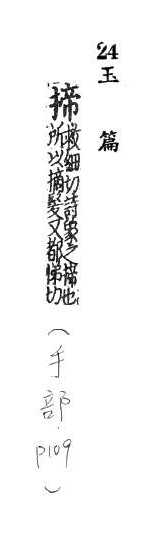 24
玉篇
掃敕細切詩象之掃也
所以摘髮又都悌切
(手部. P109)